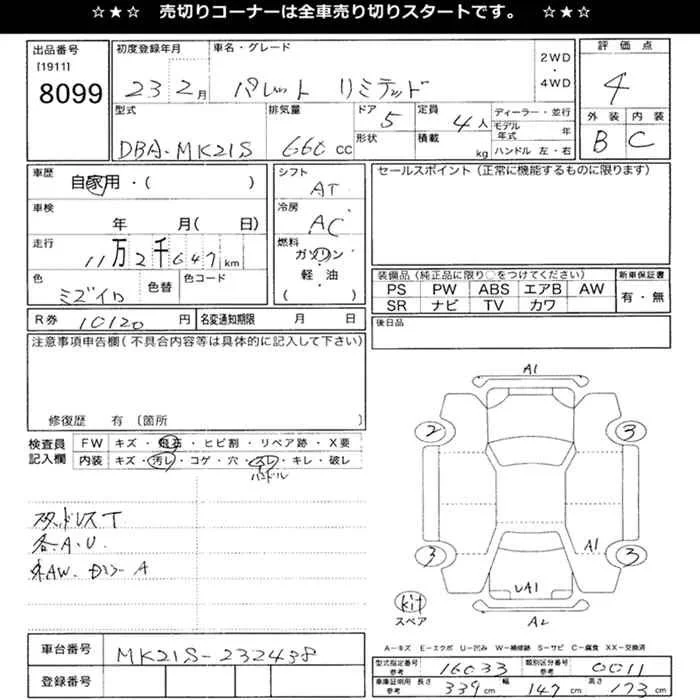 ☆★☆ 売切りコーナーは全車売り切りスタートです。 ☆★☆
出品番号
[1911]
8099
初度登録年月
23 2月
車名・グレード
パレット リミテッド
2WD
・
4WD
評価点
4
外装 内装
B C
型式
DBA-MK21S
排気量
660 cc
ドア
5
形状
定員
4人
積載
kg
ディーラー・並行
モデル年式 年
ハンドル 左・右
車歴
自家用・( )
車検
年 月( 日)
走行
11万2千647km
色
ミズイロ
色替
色コード
シフト
AT
冷房
AC
燃料
ガソリン
軽・油
( )
セールスポイント(正常に機能するものに限ります)
装備品(純正品に限り○をつけてください)
PS PW ABS エアB AW
SR ナビ TV カワ
新車保証書
有・無
R券 10120 円 名変通知期限 月 日
後日品
注意事項申告欄(不具合内容等は具体的に記入して下さい)
修復歴 有〔箇所 〕
検査員
記入欄
FW キズ・飛石・ヒビ割・リペア跡・X要
内装 キズ・汚レ・コゲ・穴・スレ・キレ・破レ
ハンドル
スタッドレスT
各.A.U.
A
A1
2 3
3 3
A1
UA1
A2
kit
スペア
A-キズ E-エクボ U-凹み W-補修跡 S-サビ C-腐食 XX-交換済
車台番号 MK21S-232438
登録番号
型式指定番号 参考 16033 類別区分番号 参考 0011
車庫証明用 参考 長さ 339cm 幅 147cm 高さ 173cm